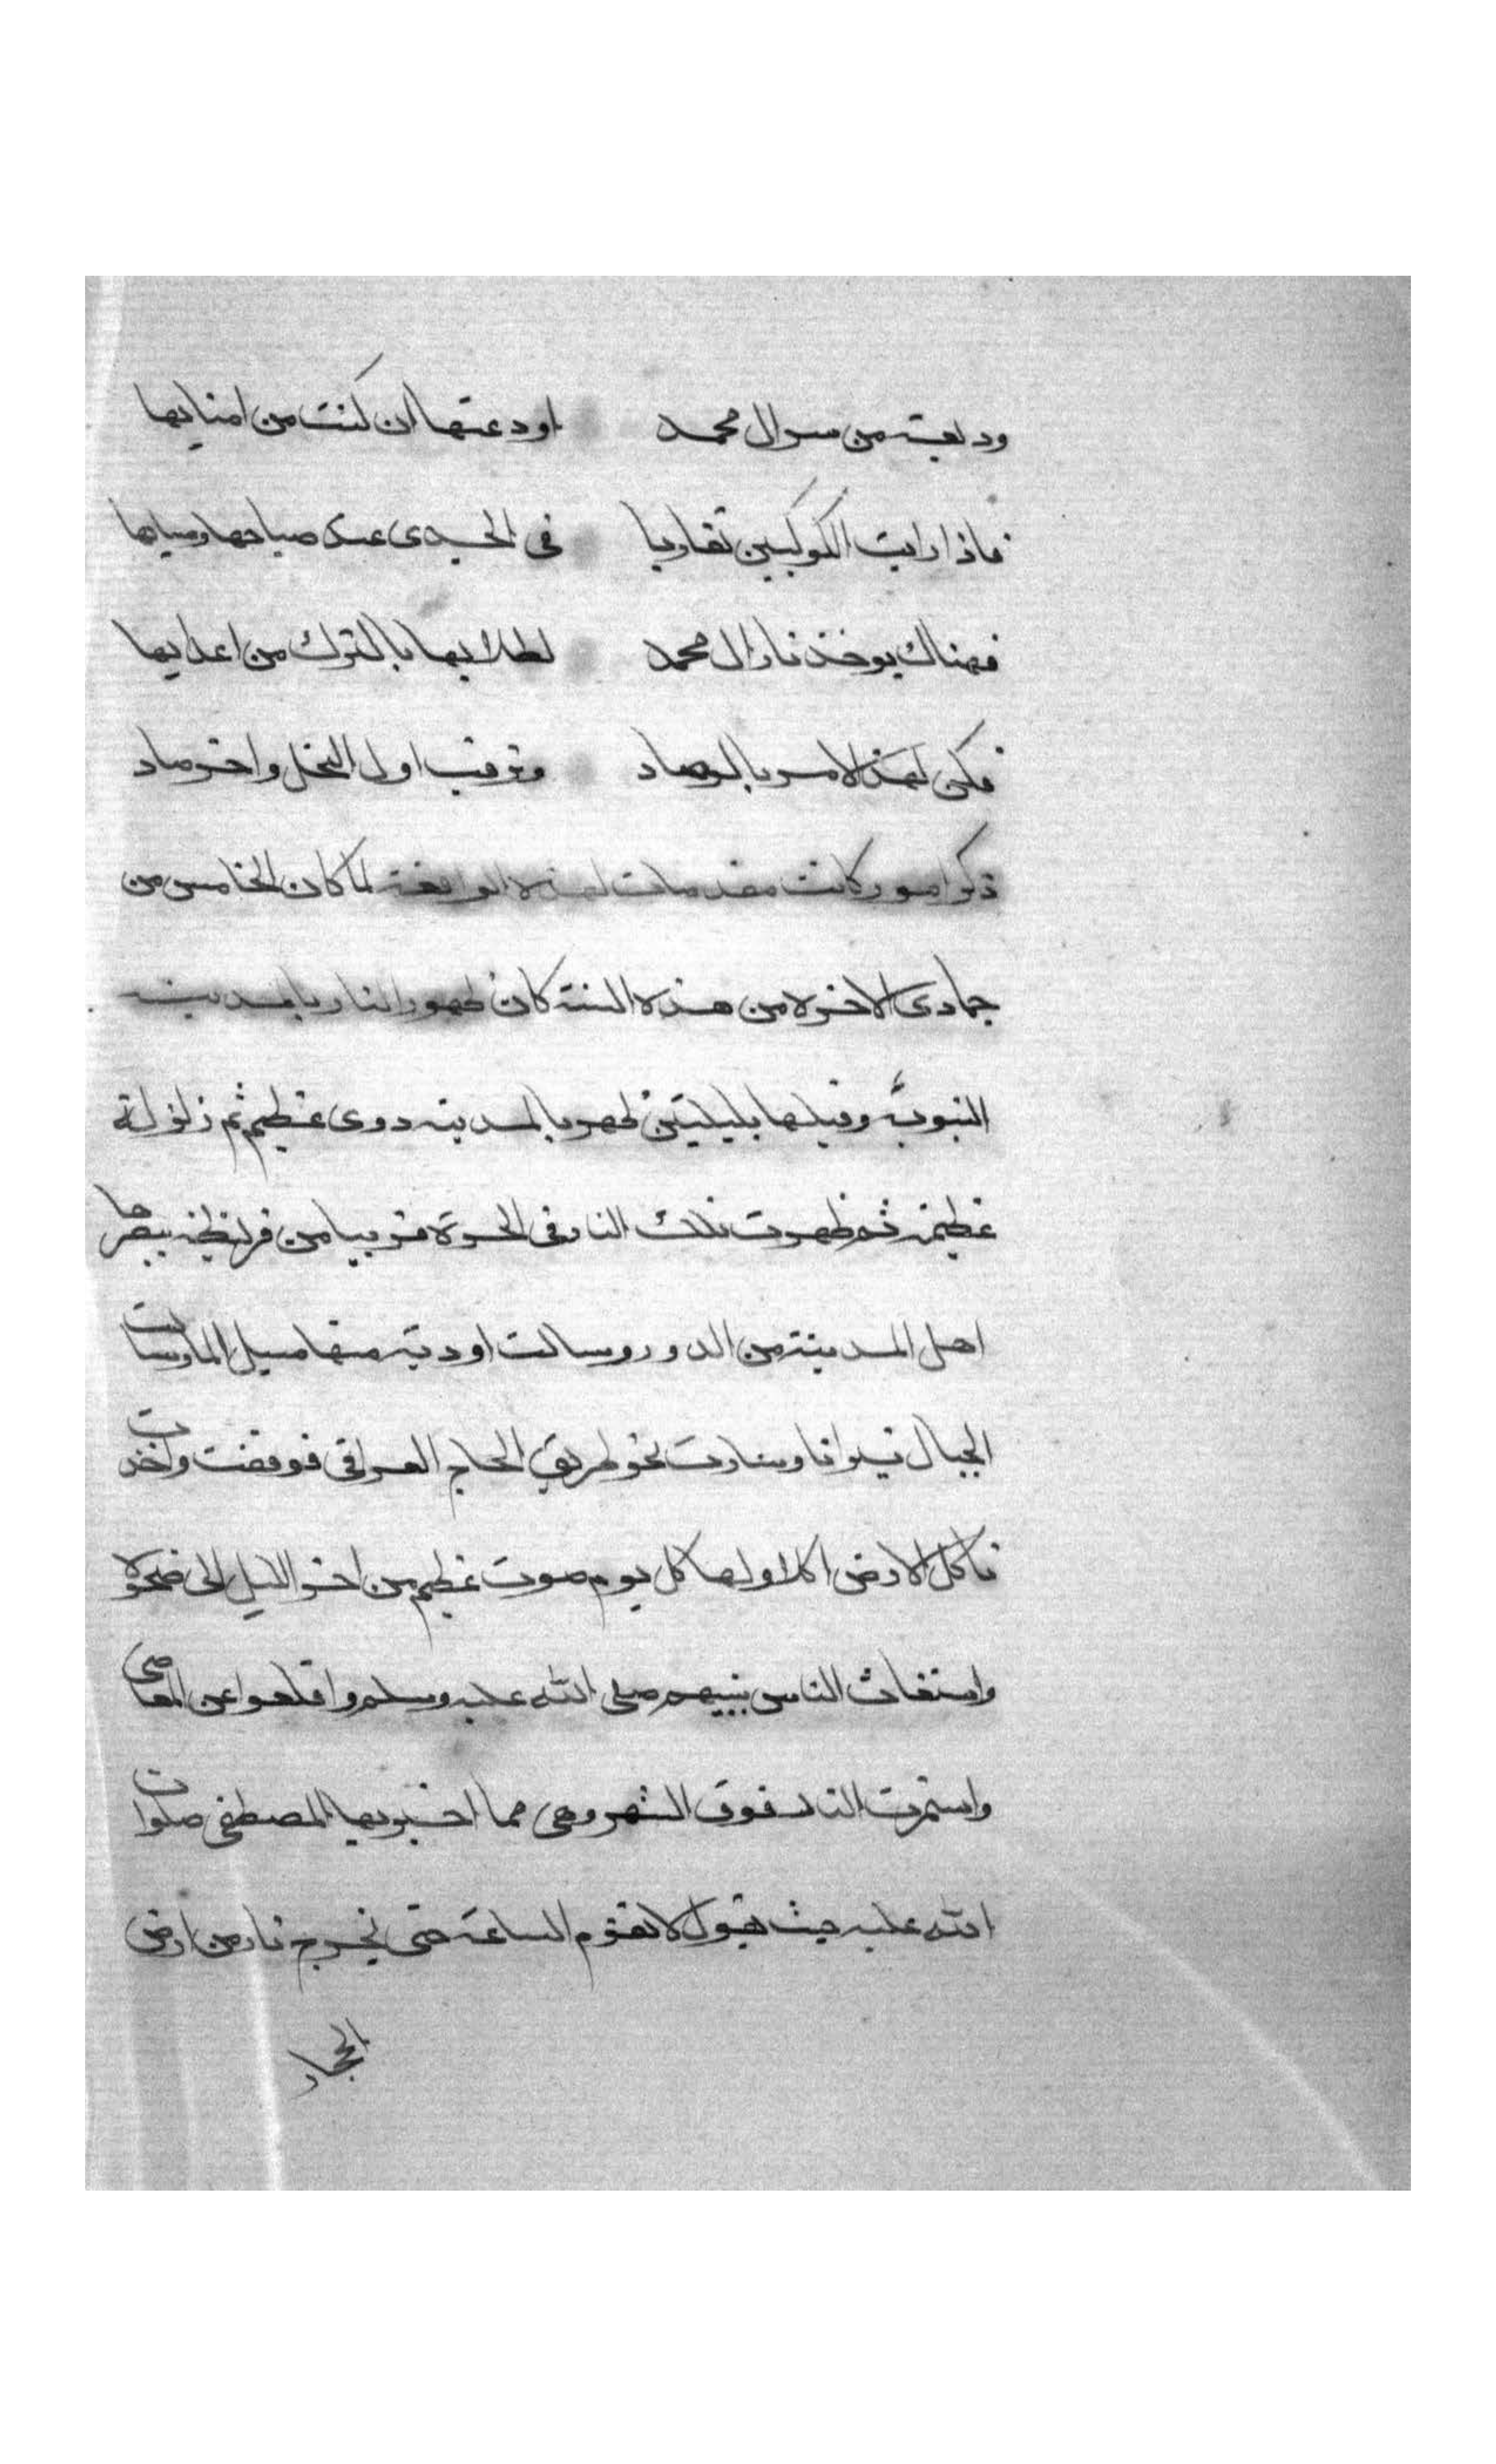 وديعة من سر ال محمد اودعتها ان كنت من امنايها
فاذا رايت الكوكبين تقاربا في الجدي عند صباحها ومسايها
فهناك يوخذ ثار ال محمد لطلابها بالترك من اعدايها
فكن لهذا الامر بالمرصاد وترقب اول النحل واخر صاد
ذكر امور كانت مقدمات لهذه الواقعة لما كان الخامس من
جمادى الاخرة من هذه السنة كان ظهور النار بالمدينة
النبوية وقبلها بليلتين ظهر بالمدينة دوي عظيم ثم زلزلة
عظيمة ثم ظهرت تلك النار في الحرة قريبا من قريظة يبصرها
اهل المدينة من الدور وسالت اودية منها سيل الما وسالت
الجبال نيرانا وسارت نحو طريق الحاج العراقي فوقفت واخذت
تاكل الارض اكلا ولها كل يوم صوت عظيم من اخر الليل الى ضحوة
واستغاث الناس بنبيهم صلى الله عليه وسلم واقلعوا عن المعاصي
واستمرت النار فوق الشهر وهي مما اخبر بها المصطفى صلوات
الله عليه حيث يقول لا تقوم الساعة حتى تخرج نار من ارض
الحجاز